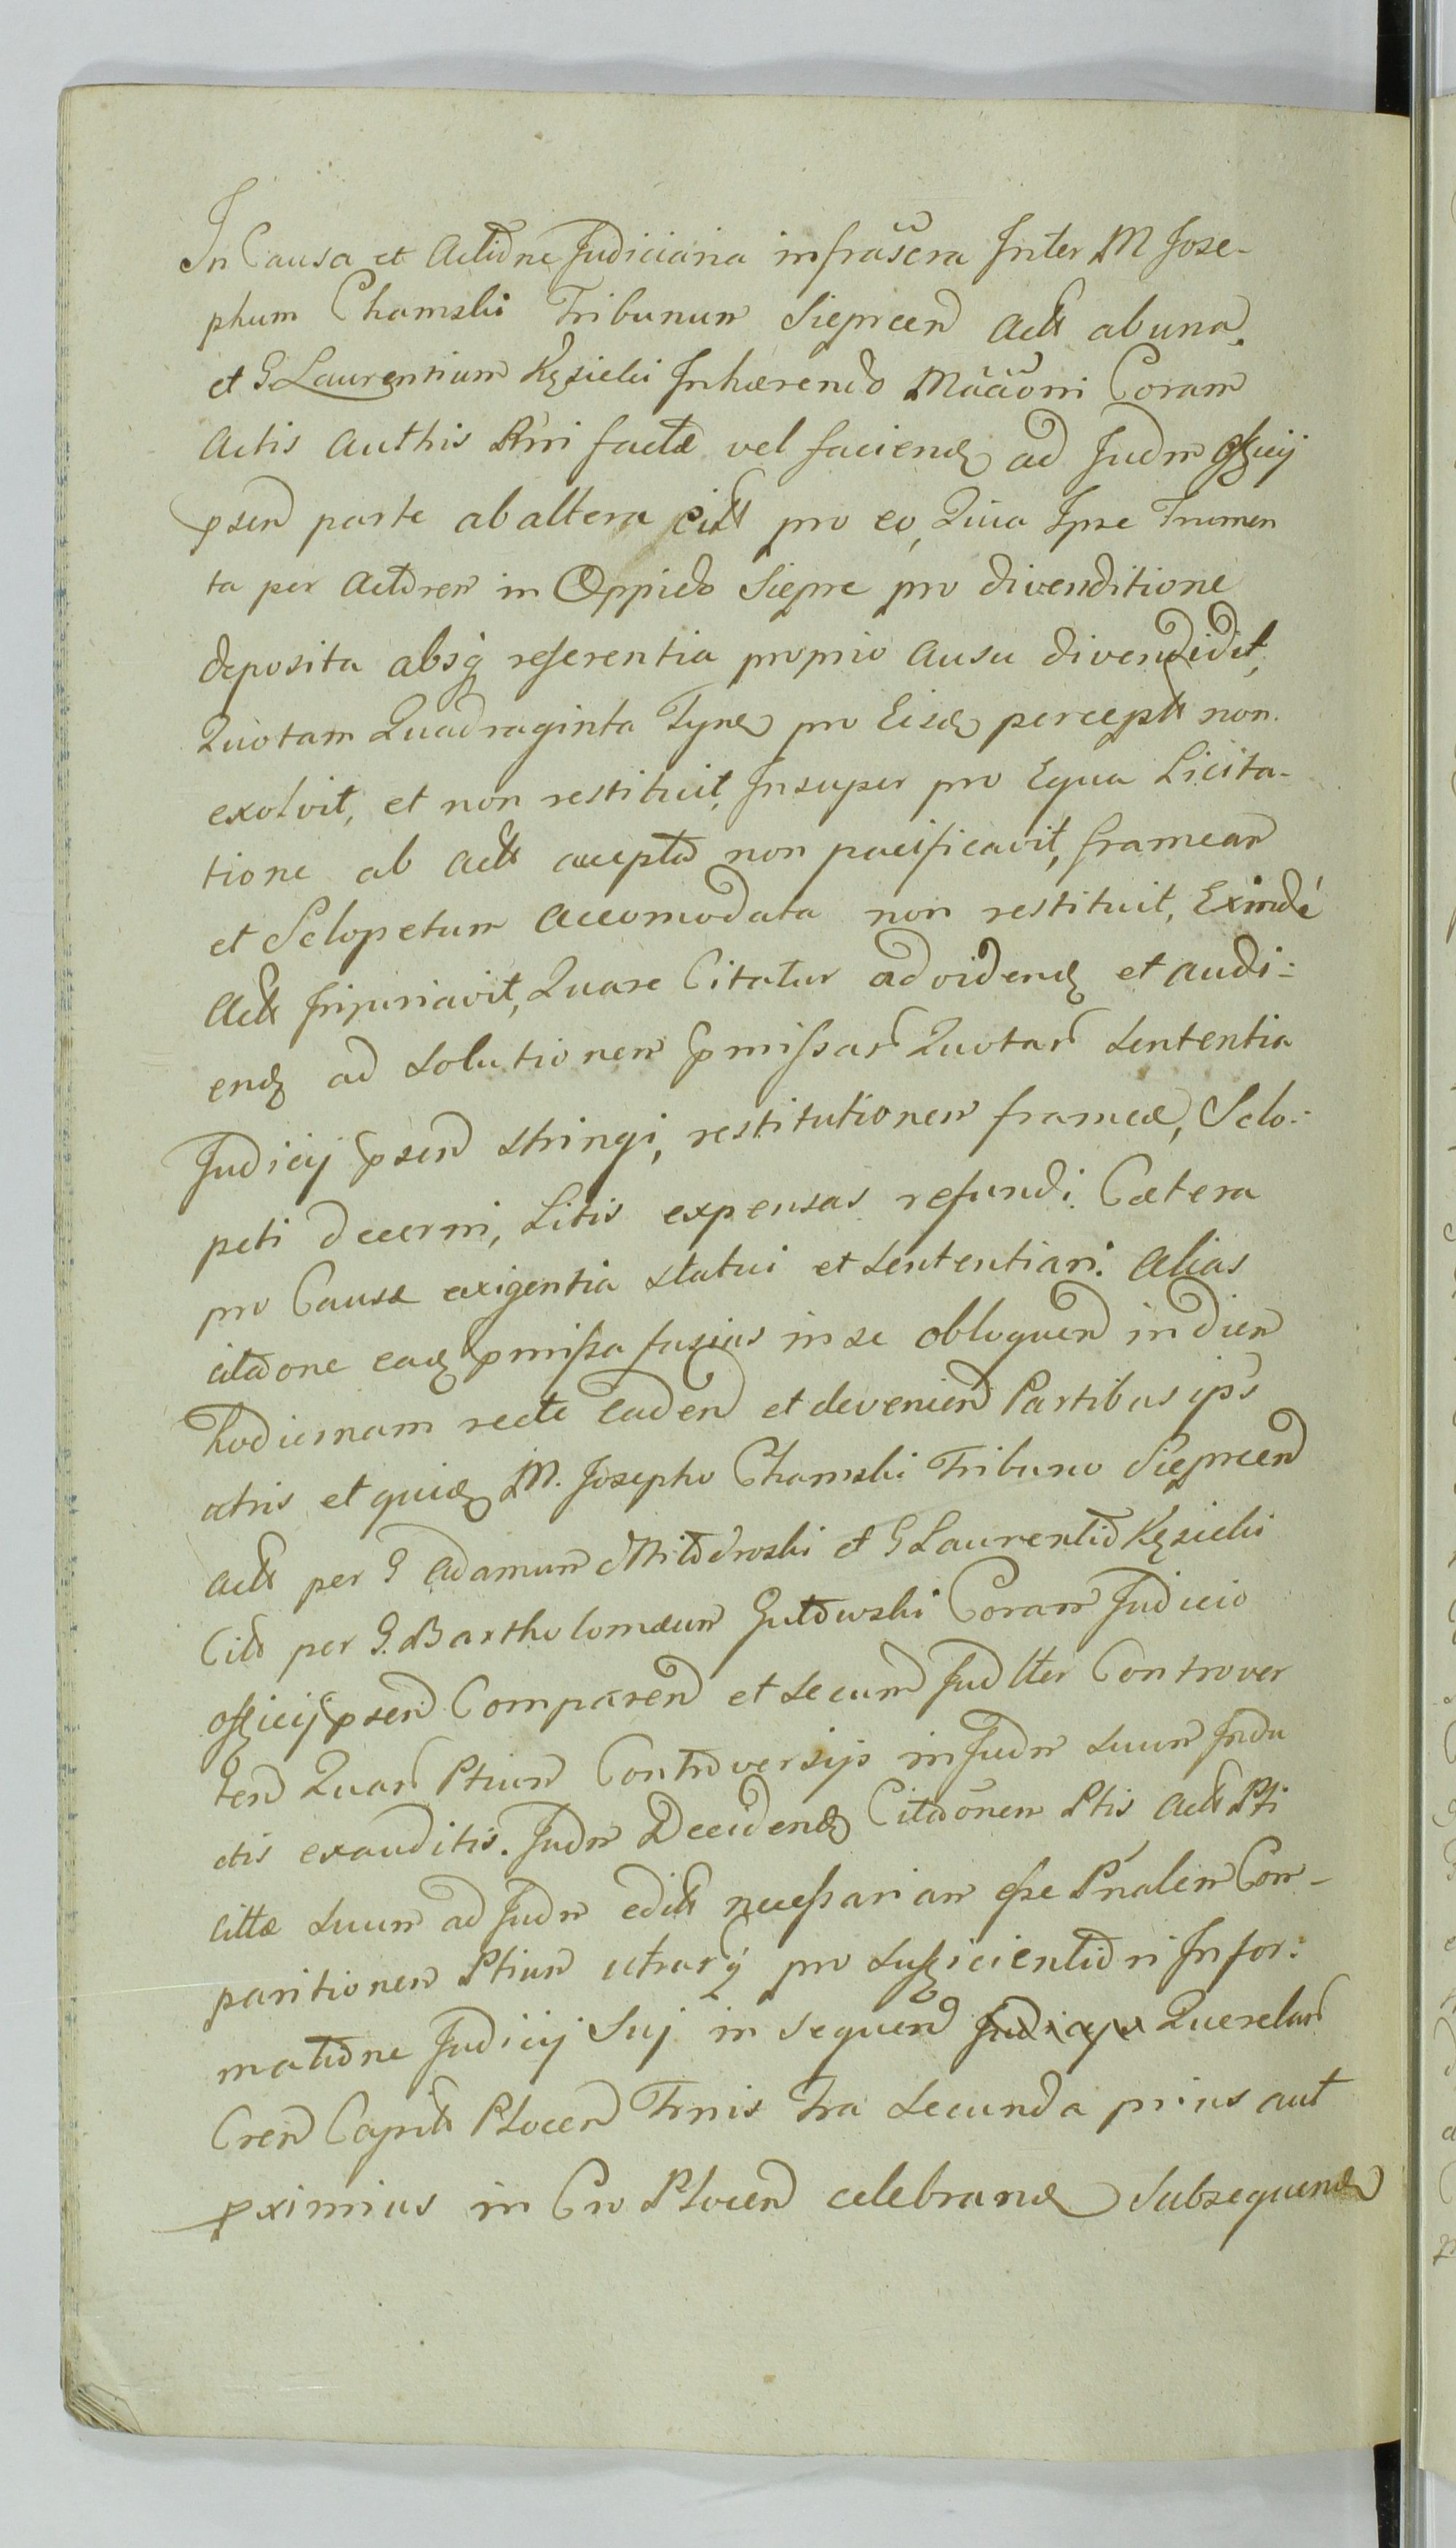 In Causa et Actione Judiciaria infrascra Inter M Jose-
phum Chamski Tribunum Sieprcen Actt ab una.
et G Laurentium Kęsicki Inhærendo Mõtioni Coram
Actis Authis Rmi factæ vel faciend ad Judm officij
psen parte ab altera Citt pro eo, Quia Ipse Frumen
ta per Actorem in Oppido Siepre pro divenditione
deposita absq referentia proprio ausu divendidit,
Quotam Quadraginta Tynf pro Eisd percept non
exolvit, et non restituit, Insuper pro Equa Licita-
tione ab Actt accepta non pacificavit, frameam
et Sclopetum accomodata non restituit, Exindé
Actt Injuriavit, Quare Citatur ad vidend et audi-
end ad solutionem pmissar Quotar sententia
Judicij psen stringi, restitutionem frameæ, Sclo-
peti decerni, Litis expensas refundi. Cætera
pro Causæ exigentia statui et sententiari. Alias
citaone ead pmissa fusius in se obloquen in diem
hodiernam recte caden et devenien Partibus ips
utris et quid M. Josepho Chamski Tribuno Sieprcen
Actt per G Adamum Mitodroski et G Laurentio Kęsicki
Citto per G. Bartholomæum Gutowski Coram Judicio
officij psen Comparen et secum Judltter Controver
ten Quar Ptium Controversijs in Judm suum Indu
ctis exauditis. Judm Decidend Citaõnem Ptis Actt Pti
cittæ suum ad Judm edit necessariam esse Pnalem Com-
paritionem Ptium utrarq pro sufficientiori Infor-
matione Judicij Sui in sequen Judicijs Querelar
Cren Capit Plocen Trnis fra secunda prius aut
pximius in Cro Plocen celebrand Subsequend